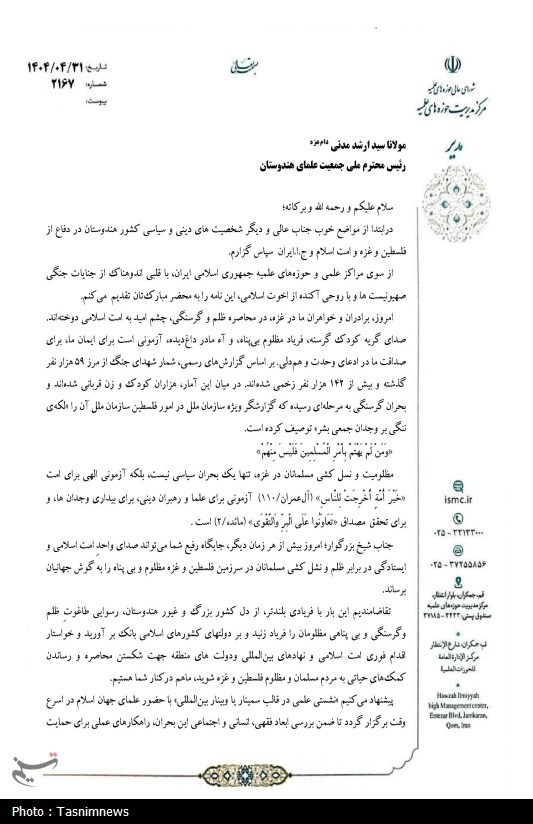 تاریخ: ۱۴۰۴/۰۴/۳۱
شماره: ۲۱۶۷
پیوست:
شورای عالی حوزه های علمیه
مرکز مدیریت حوزه های علمیه
مدیر
مولانا سید ارشد مدنی دام عزه
رئیس محترم ملی جمعیت علمای هندوستان
سلام علیکم و رحمه الله و برکاته؛
درابتدا از مواضع خوب جناب عالی و دیگر شخصیت های دینی و سیاسی کشور هندوستان در دفاع از
فلسطین و غزه و امت اسلام و ج.ا.ایران سپاس گزارم.
از سوی مراکز علمی و حوزه‌های علمیه جمهوری اسلامی ایران، با قلبی اندوهناک از جنایات جنگی
صهیونیست ها و با روحی آکنده از اخوت اسلامی، این نامه را به محضر مبارک‌تان تقدیم می‌کنم.
امروز، برادران و خواهران ما در غزه، در محاصره ظلم و گرسنگی، چشم امید به امت اسلامی دوخته‌اند.
صدای گریه کودک گرسنه، فریاد مظلوم بی‌پناه، و آه مادر داغ‌دیده، آزمونی است برای ایمان ما، برای
صداقت ما در ادعای وحدت و هم‌دلی. بر اساس گزارش‌های رسمی، شمار شهدای جنگ از مرز ۵۹ هزار نفر
گذشته و بیش از ۱۴۲ هزار نفر زخمی شده‌اند. در میان این آمار، هزاران کودک و زن قربانی شده‌اند و
بحران گرسنگی به مرحله‌ای رسیده که گزارشگر ویژه سازمان ملل در امور فلسطین سازمان ملل آن را «لکه‌ی
ننگی بر وجدان جمعی بشر» توصیف کرده است.
«وَمَنْ لَمْ يَهْتَمَّ بِأَمْرِ الْمُسْلِمِينَ فَلَيْسَ مِنْهُمْ»
مظلومیت و نسل کشی مسلمانان در غزه، تنها یک بحران سیاسی نیست، بلکه آزمونی الهی برای امت
«خَيْرَ أُمَّةٍ أُخْرِجَتْ لِلنَّاسِ» (آل‌عمران/۱۱۰) آزمونی برای علما و رهبران دینی، برای بیداری وجدان ها، و
برای تحقق مصداق «تَعَاوَنُوا عَلَى الْبِرِّ وَالتَّقْوَى» (مائده/۲) است .
جناب شیخ بزرگوار؛ امروز بیش از هر زمان دیگر، جایگاه رفیع شما می‌تواند صدای واحدِ امت اسلامی و
ایستادگی در برابر ظلم و نشل کشی مسلمانان در سرزمین فلسطین و غزه مظلوم و بی پناه را به گوش جهانیان
برساند.
تقاضامندیم این بار با فریادی بلندتر، از دل کشور بزرگ و غیور هندوستان، رسوایی طاغوتِ ظلم
وگرسنگی و بی پناهی مظلومان را فریاد زنید و بر دولتهای کشورهای اسلامی بانگ بر آورید و خواستار
اقدام فوری امت اسلامی و نهادهای بین‌المللی ودولت های منطقه جهت شکستن محاصره و رساندن
کمک‌های حیاتی به مردم مسلمان و مظلوم فلسطین و غزه شوید، ماهم درکنار شما هستیم.
پیشنهاد می‌کنیم «نشستی علمی در قالب سمینار یا وبینار بین‌المللی» با حضور علمای جهان اسلام در اسرع
وقت برگزار گردد تا ضمن بررسی ابعاد فقهی، انسانی و اجتماعی این بحران، راهکارهای عملی برای حمایت
ismc.ir
۰۲۵ - ۳۲۱۳۳۰۰۰
۰۲۵ - ۳۷۲۵۵۸۵۶
قم، جمکران، بلوار انتظار،
مرکز مدیریت حوزه های علمیه
صندوق پستی: ۳۴۳۳ - ۳۷۱۸۵
قم، جمکران، شارع الانتظار
مرکز الإدارة العامة
للحوزات العلمیة
Hawzah Ilmiyyah
high Management center,
Entezar Blvd, Jamkaran,
Qom, Iran
تسنیم
Photo : Tasnimnews